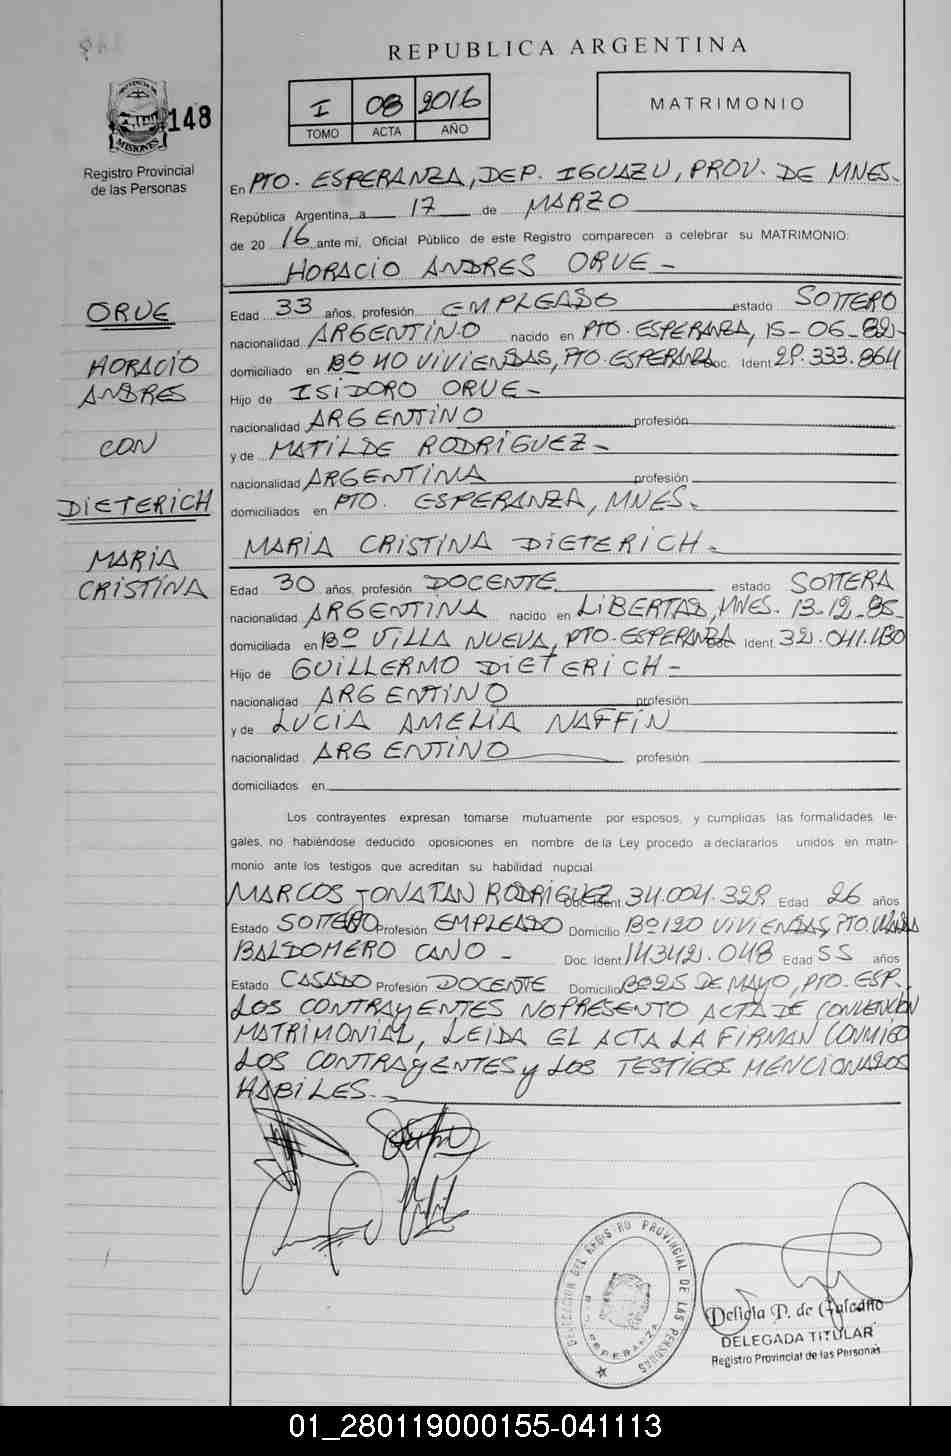 REPUBLICA ARGENTINA
PROVINCIA DE
MISIONES
148
Registro Provincial
de las Personas
I 08 2016
TOMO ACTA AÑO
MATRIMONIO
En PTO. ESPERANZA, DEP. IGUAZU, PROV. DE MNES.
República Argentina, a 17 de MARZO
de 20 16 ante mí, Oficial Público de este Registro comparecen a celebrar su MATRIMONIO:
HORACIO ANDRES ORUE -
ORUE
HORACIO
ANDRES
CON
DIETERICH
MARIA
CRISTINA
Edad 33 años, profesión EMPLEADO estado SOLTERO
nacionalidad ARGENTINO nacido en PTO. ESPERANZA, 15-06-82-
domiciliado en Bº 40 VIVIENDAS, PTO. ESPERANZA Doc. Ident. 29.333.864
Hijo de ISIDORO ORUE -
nacionalidad ARGENTINO profesión
y de MATILDE RODRIGUEZ -
nacionalidad ARGENTINA profesión
domiciliados en PTO. ESPERANZA, MNES.
MARIA CRISTINA DIETERICH -
Edad 30 años, profesión DOCENTE estado SOLTERA
nacionalidad ARGENTINA nacido en LIBERTAD, MNES. 13-12-85-
domiciliada en Bº VILLA NUEVA, PTO. ESPERANZA Doc. Ident. 32.041.130
Hijo de GUILLERMO DIETERICH -
nacionalidad ARGENTINO profesión
y de LUCIA AMELIA NAFFIN
nacionalidad ARGENTINO profesión
domiciliados en
Los contrayentes expresan tomarse mutuamente por esposos, y cumplidas las formalidades le-
gales, no habiéndose deducido oposiciones en nombre de la Ley procedo a declararlos unidos en matri-
monio ante los testigos que acreditan su habilidad nupcial.
MARCOS JONATAN RODRIGUEZ Doc. Ident. 34.004.329 Edad 26 años
Estado SOLTERO Profesión EMPLEADO Domicilio Bº 120 VIVIENDAS, PTO.
BALDOMERO CANO - Doc. Ident. 14342.048 Edad 55 años
Estado CASADO Profesión DOCENTE Domicilio Bº 25 DE MAYO, PTO. ESP.
LOS CONTRAYENTES NO PRESENTO ACTA DE CONVENCION
MATRIMONIAL, LEIDA EL ACTA LA FIRMAN CONMIGO
LOS CONTRAYENTES Y LOS TESTIGOS MENCIONADOS
HABILES.-
DELEGACION DEL REGISTRO PROVINCIAL DE LAS PERSONAS
ESPERANZA
Delicia P. de Galeano
DELEGADA TITULAR
Registro Provincial de las Personas
01_280119000155-041113